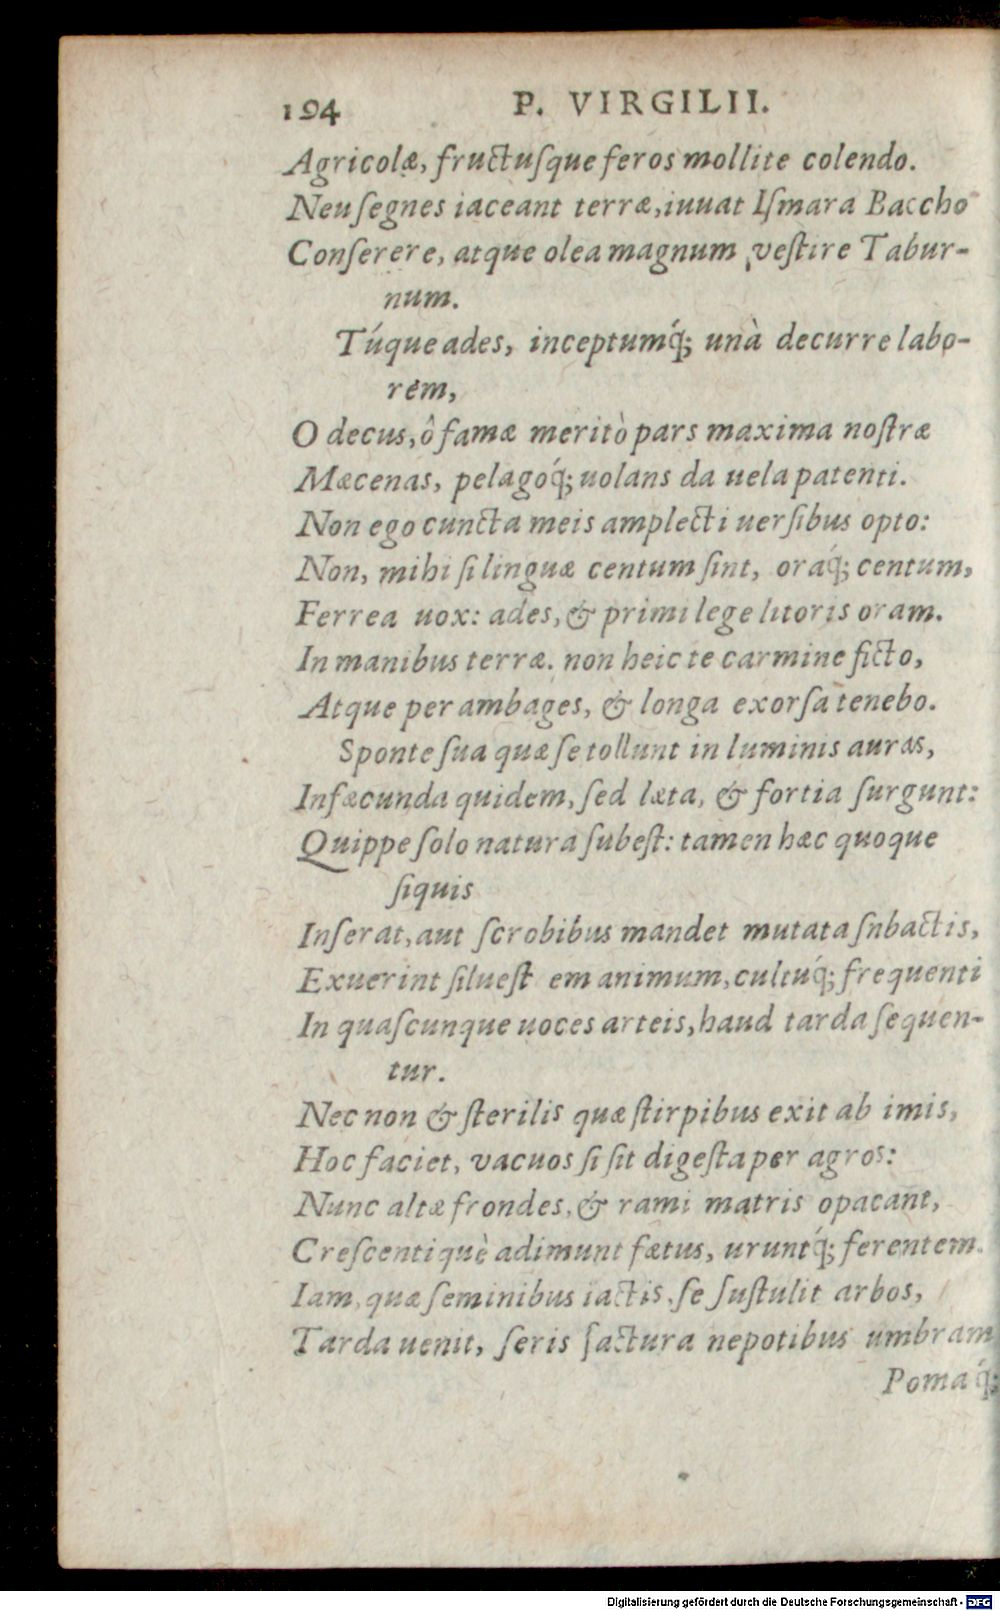 194 P. VIRGILII.
Agricolæ, fructuſque feros mollite colendo.
Neu ſegnes iaceant terræ, iuuat Iſmara Baccho
Conſerere, atque olea magnum veſtire Tabur-
num.
Túque ades, inceptumq́; unà decurre labo-
rem,
O decus, ô famæ meritò pars maxima noſtræ
Mæcenas, pelagoq́; uolans da uela patenti.
Non ego cuncta meis amplecti uerſibus opto:
Non, mihi ſi linguæ centum ſint, oraq́; centum,
Ferrea uox: ades, & primi lege litoris oram.
In manibus terræ. non heic te carmine ficto,
Atque per ambages, & longa exorſa tenebo.
Sponte ſua quæ ſe tollunt in luminis auras,
Infæcunda quidem, ſed læta, & fortia ſurgunt:
Quippe ſolo natura ſubeſt: tamen hæc quoque
ſiquis
Inſerat, aut ſcrobibus mandet mutata ſnbactis,
Exuerint ſilueſt em animum, cultuq́; frequenti
In quaſcunque uoces arteis, haud tarda ſequen-
tur.
Nec non & ſterilis quæ ſtirpibus exit ab imis,
Hoc faciet, vacuos ſi ſit digeſta per agros:
Nunc altæ frondes, & rami matris opacant,
Creſcentiquè adimunt fætus, uruntq́; ferentem.
Iam, quæ ſeminibus iactis ſe ſuſtulit arbos,
Tarda uenit, ſeris factura nepotibus umbram
Pomaq́;
Digitalisierung gefördert durch die Deutsche Forschungsgemeinschaft - DFG